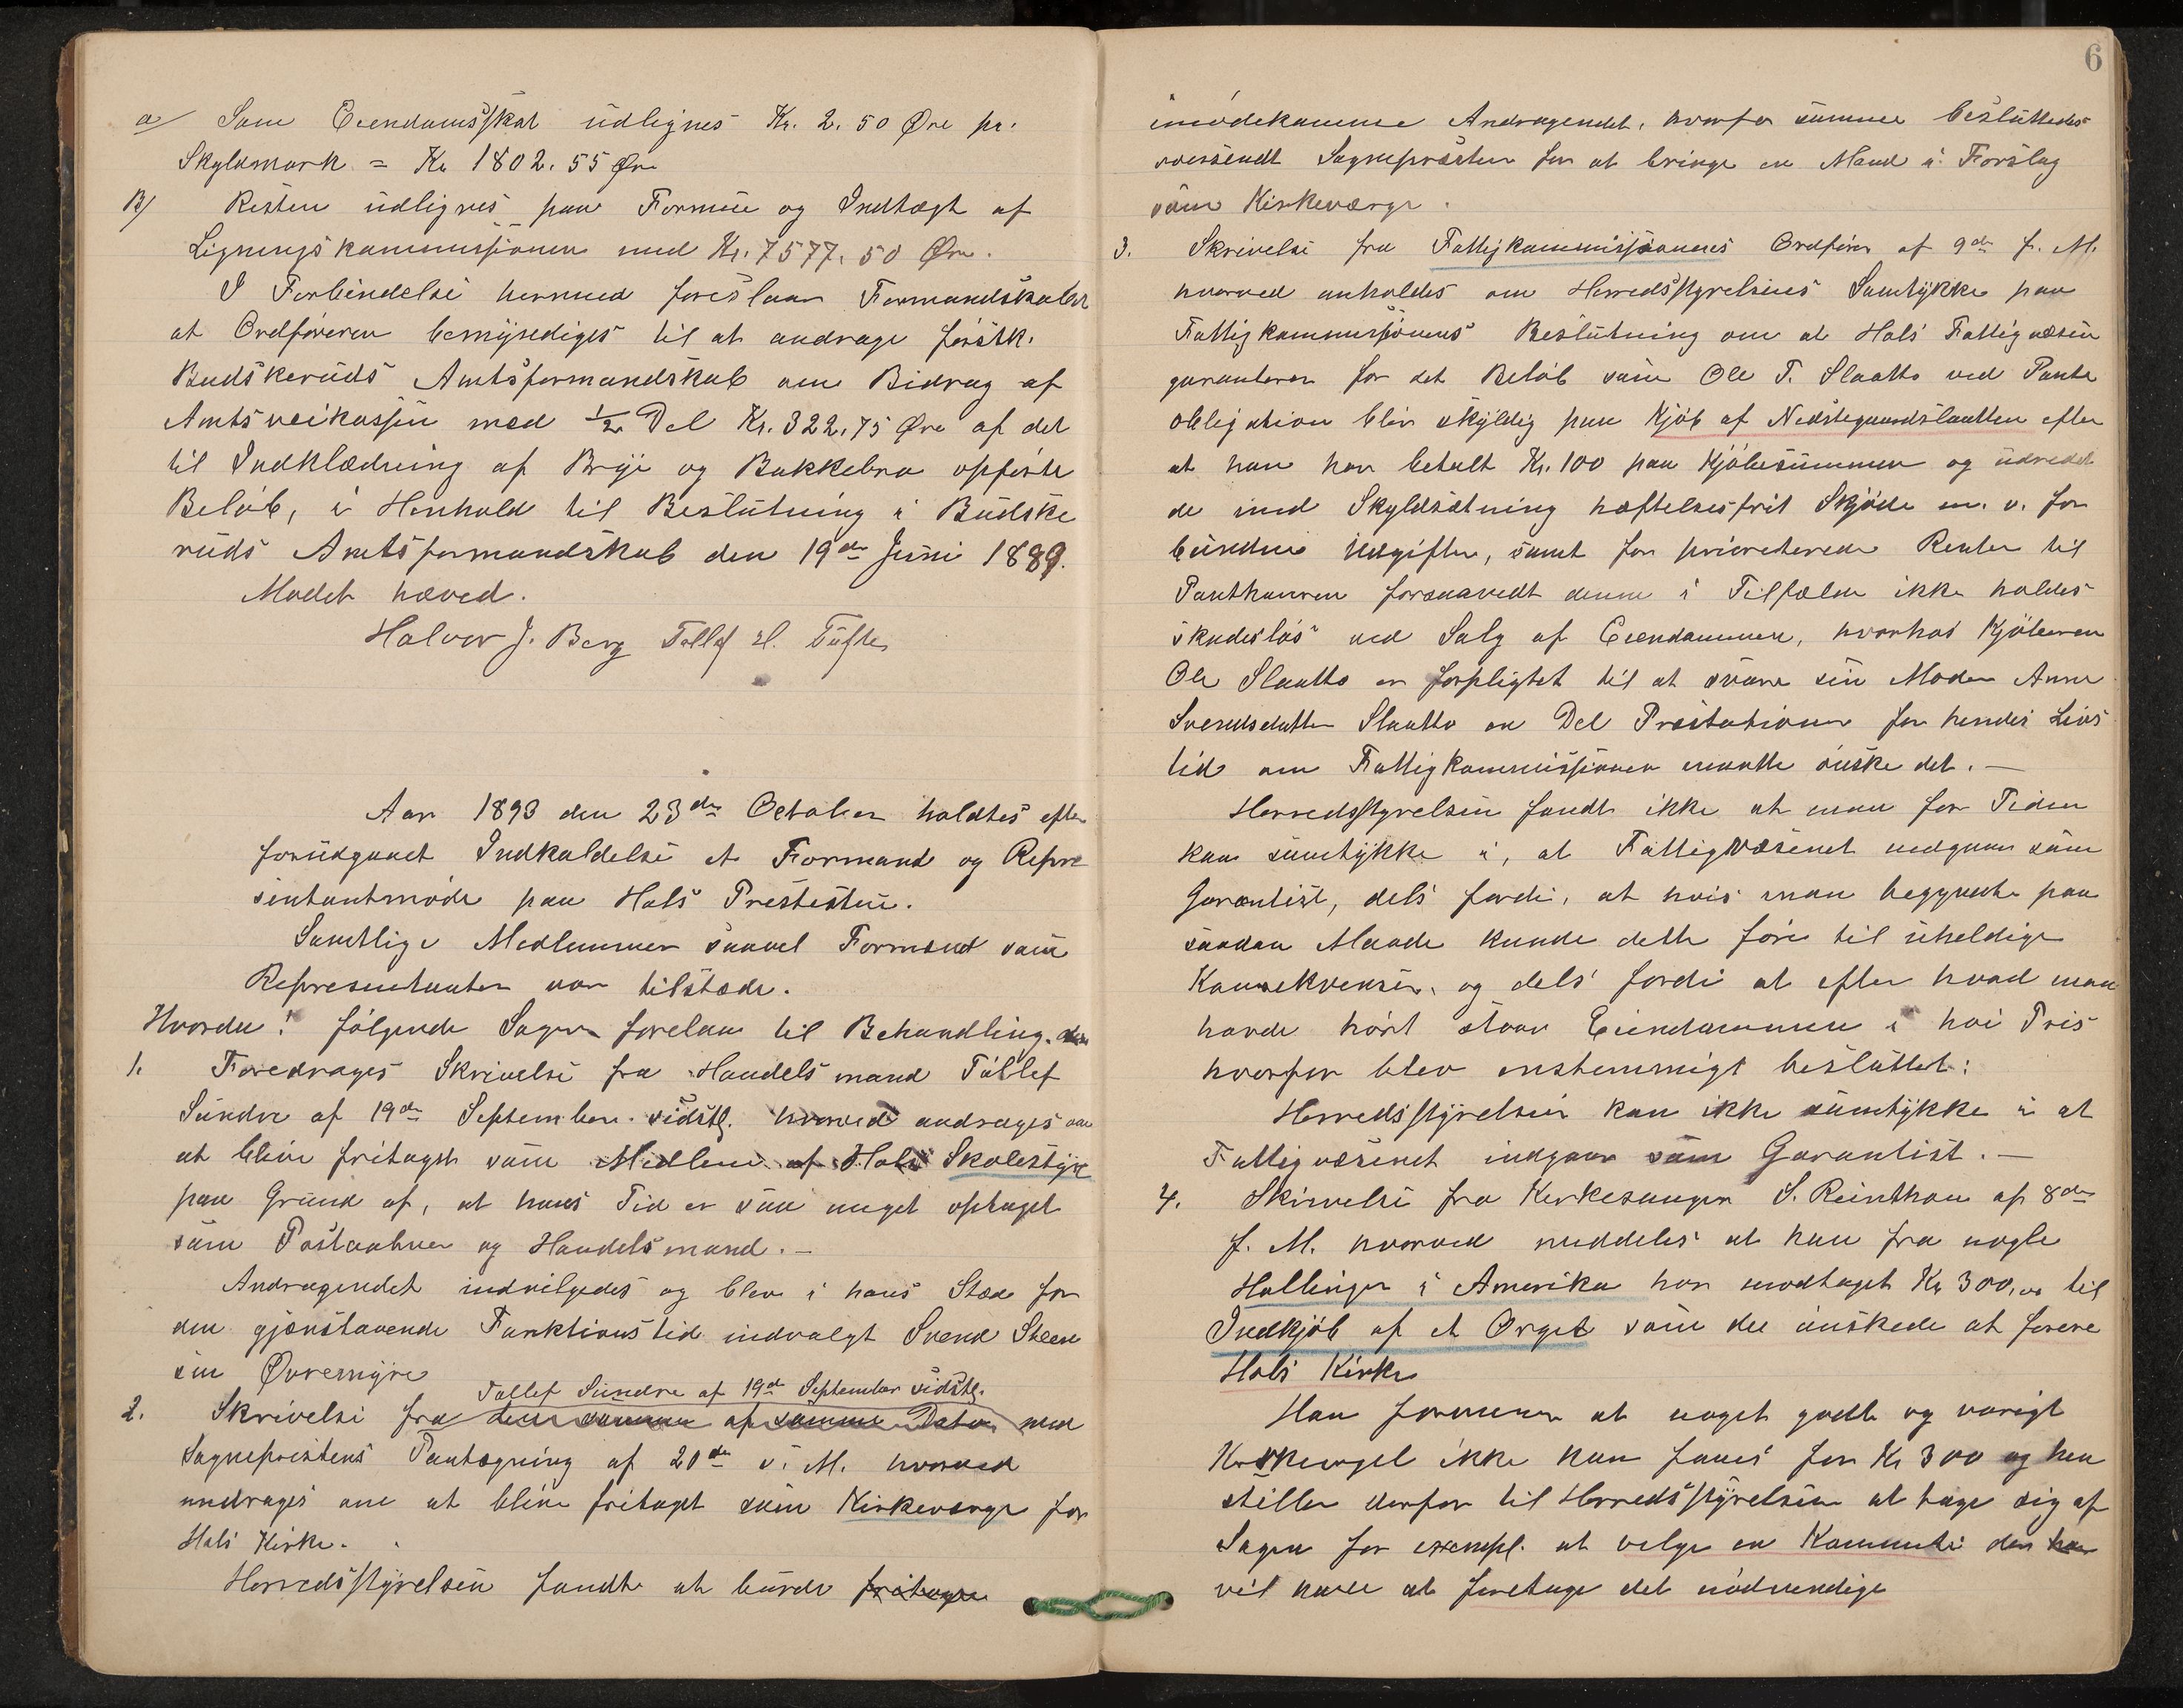 a/ Som Eiendomsskat udlignes Kr. 2.50 Øre pr.
Skyldmark = Kr 1802.55 Øre
B/ Resten udlignes paa Formue og Indtægt af
Ligningskommissionen med Kr. 7577.50 Øre.
I Forbindelse hermed foreslaar Formandskabet
at Ordføreren bemyndiges til at andrage
Budskeruds Amtsformandskab om Bidrag af
Amtsveikassen med 1/2 Del Kr. 322.75 Øre af det
til Indklædning af Brye og Bakkebra opførte
Beløb, i Henhold til Beslutning i Budske
ruds Amtsformandskab den 19de Juni 1889.
Mødet hæved.
Halvor J. Berg Tollef H. Tufte
Aar 1893 den 23de October holdtes efter
forudgaaet Indkaldelse et Formand og Repre
sentantmøde paa Hols Prestestue.
Samtlige Medlemmer saavel Formænd som
Representanter var tilstæde.
Hvorda! følgende Sager forelaa til Behandling.
1. Foredrages Skrivelse fra Handelsmand Tollef
Sundre af 19de September sidstl. hvorved andrages om
at blive fritaget som Medlem af Hols Skolestyre
paa Grund af, at hans Tid er saa meget optaget
som Postaabner og Handelsmand. –
Andragendet indvilgedes og blev i hans Stæd for
den gjenstaaende Funktionstid indvalgt Svend Steen
sen Øvremyre
Tollef Sundre af 19de September sidstl.
2. Skrivelse fra den samme af samme Dato med
Sogneprestens Paategning af 20de s. M. hvorved
andrages om at blive fritaget som Kirkeværge for
Hols Kirke.
Herredsstyrelsen fandt at burde fritage
6
imødekomme Andragendet, hvorfor samme besluttedes
oversendt Sognepresten for at bringe en Mand i Forslag
som Kirkeværge.
3. Skrivelse fra Fattigkommissionens Ordfører af 9de f. M.
hvorved anholdes om Herredsstyrelsens Samtykke paa
Fattigkommissionens Beslutning om at Hols Fattigvæsen
garanterer for det Beløb som Ole T. Slaatto ved Pante
obligation blir skyldig paa Kjøb af Nedstegaardslaatten efter
at han har betalt Kr. 100 paa Kjøbesummen og udredet
de med Skyldsætning hæftelsesfrit Skjøde m. v. for
bundne Udgifter, samt for prioriterede Renter til
Panthaveren forsaavidt denne i Tilfælde ikke holdes
skadesløs ved Salg af Eiendommen, hvorhos Kjøberen
Ole Slaatto er forpligtet til at svare sin Moder Anne
Svendsdatter Slaatto en Del Præstationer for hendes Livs
tid om Fattigkommissionen maatte ønske det. –
Herredsstyrelsen fandt ikke at man for Tiden
kan samtykke i, at Fattigvæsenet indgaar som
Garantist, dels fordi, at hvis man begyndte paa
saadan Maade kunde dette føre til uheldige
Konsekvenser, og dels fordi at efter hvad man
havde hørt staar Eiendommen i høi Pris
hvorfor blev enstemmigt besluttet:
Herredsstyrelsen kan ikke samtykke i at
Fattigvæsenet indgaar som Garantist. –
4. Skrivelse fra Kirkesanger S. Reinthon af 8de
f. M. hvorved meddeles at han fra nogle
Hallinger i Amerika har modtaget Kr 300,00 til
Indkjøb af et Orgel som de ønskede at forere
Hols Kirke
Han formener at noget godt og varigt
Kirkeorgel ikke kan faaes for Kr 300 og hen
stiller derfor til Herredsstyrelsen at tage sig af
Sagen for exempl. at velge en Kommite der har
vil have at foretage det nødvendige